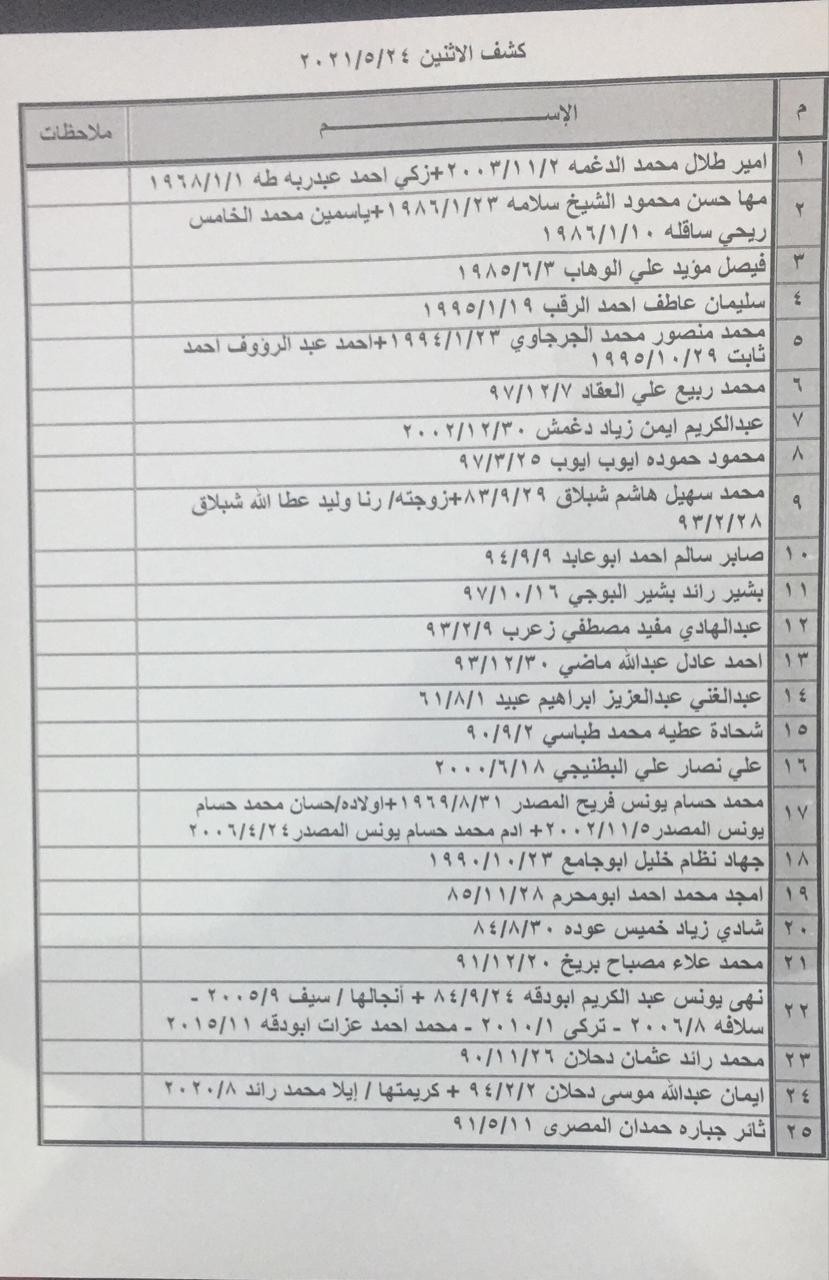 كشف الاثنين ٢٠٢١/٥/٢٤
م الإســـــــــــــــــــم ملاحظات
١ امير طلال محمد الدغمه ٢٠٠٣/١١/٢+زكي احمد عبدربه طه ١٩٦٨/١/١
٢ مها حسن محمود الشيخ سلامه ١٩٨٦/١/٢٣+ياسمين محمد الخامس
ريحي ساقله ١٩٨٦/١/١٠
٣ فيصل مؤيد علي الوهاب ١٩٨٥/٦/٣
٤ سليمان عاطف احمد الرقب ١٩٩٥/١/١٩
٥ محمد منصور محمد الجرجاوي ١٩٩٤/١/٢٣+احمد عبد الرؤوف احمد
ثابت ١٩٩٥/١٠/٢٩
٦ محمد ربيع علي العقاد ٩٧/١٢/٧
٧ عبدالكريم ايمن زياد دغمش ٢٠٠٢/١٢/٣٠
٨ محمود حموده ايوب ايوب ٩٧/٣/٢٥
٩ محمد سهيل هاشم شبلاق ٨٣/٩/٢٩+زوجته/ رنا وليد عطا الله شبلاق
٩٣/٢/٢٨
١٠ صابر سالم احمد ابوعابد ٩٤/٩/٩
١١ بشير رائد بشير البوجي ٩٧/١٠/١٦
١٢ عبدالهادي مفيد مصطفي زعرب ٩٣/٢/٩
١٣ احمد عادل عبدالله ماضي ٩٣/١٢/٣٠
١٤ عبدالغني عبدالعزيز ابراهيم عبيد ٦١/٨/١
١٥ شحادة عطيه محمد طباسي ٩٠/٩/٢
١٦ علي نصار علي البطنيجي ٢٠٠٠/٦/١٨
١٧ محمد حسام يونس فريح المصدر ١٩٦٩/٨/٣١+اولاده/حسان محمد حسام
يونس المصدر٢٠٠٢/١١/٥+ ادم محمد حسام يونس المصدر٢٠٠٦/٤/٢٤
١٨ جهاد نظام خليل ابوجامع ١٩٩٠/١٠/٢٣
١٩ امجد محمد احمد ابومحرم ٨٥/١١/٢٨
٢٠ شادي زياد خميس عوده ٨٤/٨/٣٠
٢١ محمد علاء مصباح بريخ ٩١/١٢/٢٠
٢٢ نهى يونس عبد الكريم ابودقه ٨٤/٩/٢٤ + أنجالها / سيف ٢٠٠٥/٩ -
سلافه ٢٠٠٦/٨ - تركى ٢٠١٠/١ - محمد احمد عزات ابودقه ٢٠١٥/١١
٢٣ محمد رائد عثمان دحلان ٩٠/١١/٢٦
٢٤ ايمان عبدالله موسى دحلان ٩٤/٢/٢ + كريمتها / إيلا محمد رائد ٢٠٢٠/٨
٢٥ ثائر جباره حمدان المصرى ٩١/٥/١١